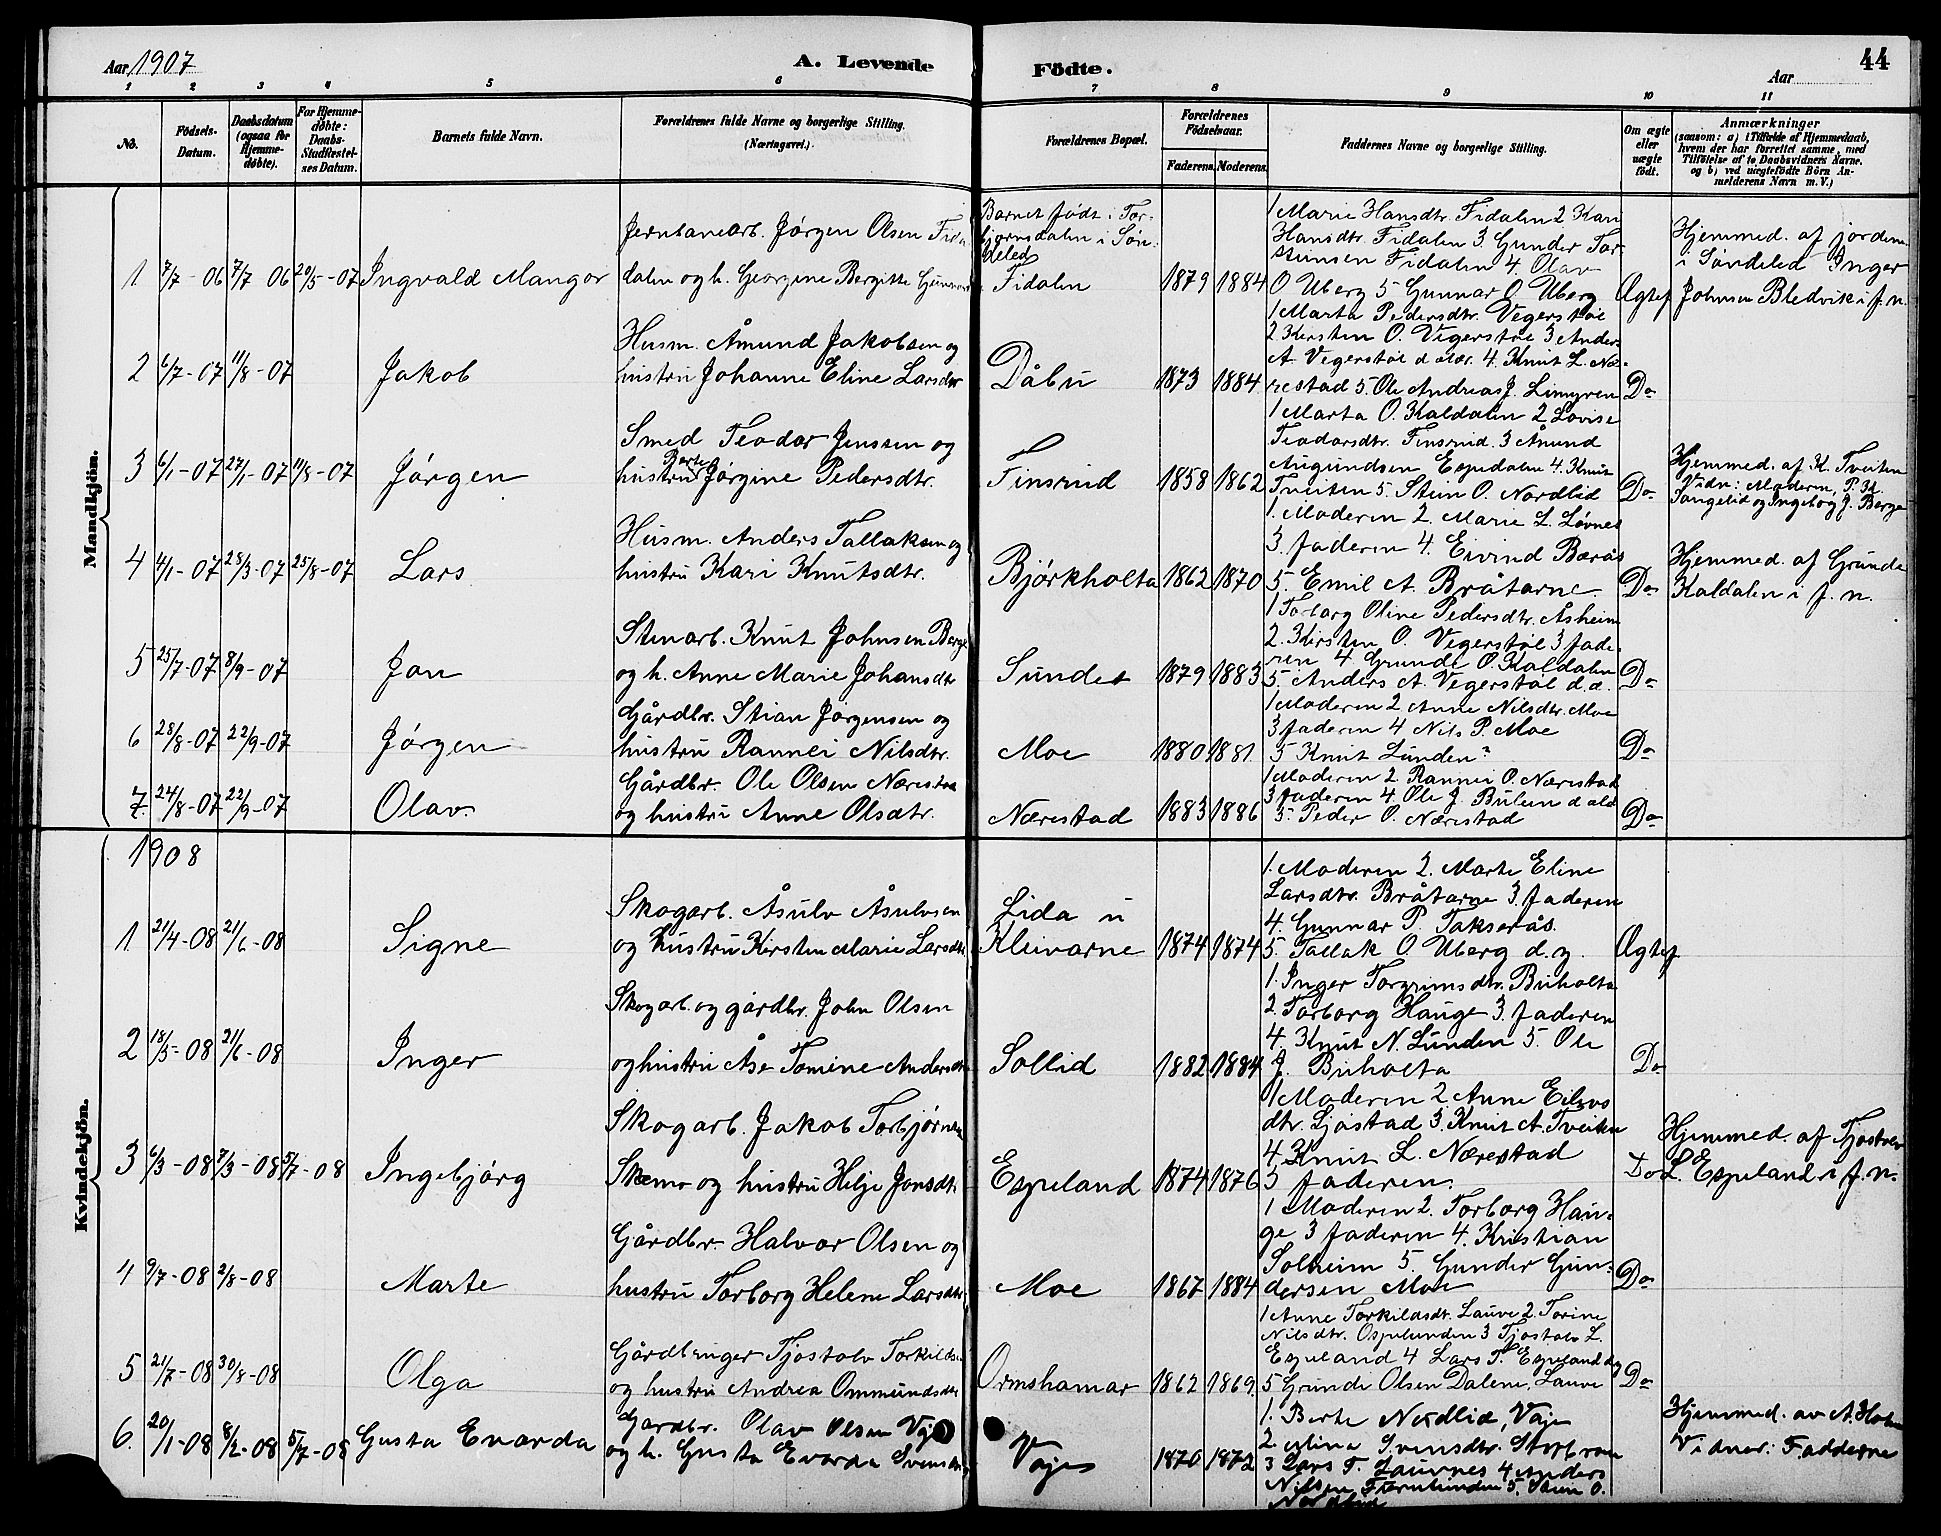 Aar 1907
A. Levende Födte.
Aar
44
1 2 3 4 5 6 7 8 9 10 11
No.
Födsels-Datum.
Daabsdatum (ogsaa for Hjemme-döbte).
For Hjemme-döbte: Daabs-Stadfæstel-ses Datum.
Barnets fulde Navn.
Forældrenes fulde Navne og borgerlige Stilling. (Næringsvei.)
Forældrenes Bopæl.
Forældrenes Födselsaar.
Faderens. Moderens.
Faddernes Navne og borgerlige Stilling.
Om ægte eller uægte födt.
Anmærkninger
(saasom: a) i Tilfælde af Hjemmedaab,
hvem der har forrettet samme, med
Tilföielse af to Daabsvidners Navne.
og b) ved uægtefödte Börn An-
melderens Navn m. V.)
Mandkjön.
1 7/7-06 7/7 06 20/5-07 Ingvald Mangor
Jernbanearb. Jörgen Olsen Fida
dalen og h. Georgine Bergitte
Barnet født i Tor-
bjørnsdalen i Søn-
deled
Fidalen 1879 1884
1 Marie Hansdtr. Fidalen 2 Kari
Hansdtr. Fidalen 3. Gunder Tor-
steinsen Fidalen 4. Olav
O Uberg 5 Gunnar O. Uberg
Ægtef
Hjemmed. af jordem.
i Søndeled Inger
Johnsen Bledvik i J. n.
2 6/7-07 11/8-07 Jakob
Husm. Åmund Jakobsen og
hustru Johanne Eline Larsdtr
Dåbu 1873 1884
1 Marta Pedersdtr. Vegerstøl
2 Kirsten O. Vegerstøl 3 Anders
A. Vegerstøl d. ældr. 4. Knut L. Næ-
restad 5. Ole Andreas J. Limyren
Do
3 6/1-07 27/1-07 11/8-07 Jörgen
Smed Teodor Jenssen og
hustru Berte Jörgine Pedersdtr.
Finsrud 1858 1862
1 Marta O. Kaldalen 2 Lovise
Teodorsdtr. Finsrud. 3 Åmund
Augundsen Espedalen 4. Knut
Tveiten 5. Stein O. Nordlid
Do
Hjemmed. af K. Tveiten
Vidn: Moderen, P. K.
Songelid og Ingeborg J. Berge
4 4/1-07 23/3-07 25/8-07 Lars
Husm. Anders Tallaksen og
hustru Kari Knutsdtr.
Bjørkholta 1862 1870
1. Moderen 2. Marie L. Løvnes
3. faderen 4. Eivind Berås
5. Emil A. Bråtane
Do
Hjemmed. af Grunde
Kaldalen i J. n.
5 25/7-07 8/9-07 Jon
Stenarb. Knut Johnsen Berge
og h. Anne Marie Johansdtr
Sundet 1879 1883
1 Torborg Oline Pedersdtr. Åsheim
2. Kirsten O. Vegerstøl 3 fade-
ren 4 Grunde O. Kaldalen
5. Anders A. Vegerstøl d. æ.
Do
6 28/8-07 22/9-07 Jörgen
Gårdbr. Stian Jörgensen og
hustru Rannei Nilsdtr.
Moe 1880 1881
1 Moderen 2 Anne Nilsdtr. Moe
3 faderen 4 Nils P. Moe
5 Knut Lunden
Do
7. 24/8-07 22/9-07 Olav.
Gårdbr. Ole Olsen Nærestad
og hustru Anne Olsdtr.
Nærestad 1883 1886
1 Moderen 2 Rannei O. Nærestad
3 faderen 4 Ole J. Buleen d æld
5. Peder O. Nærestad
Do
1908
Kvindekjön.
1 21/4-08 21/6-08 Signe
Skogarb. Åsulv Åsulvsen
og hustru Kirsten Marie Larsdtr
Lida u
Kleivarne 1874 1874
1. Moderen 2. Marte Eline
Larsdtr. Bråtarne 3. faderen
4. Gunnar P. Takserås.
5. Tallak O. Uberg d. y.
Ægtef
2 18/5-08 21/6-08 Inger
Skogarb. og gårdbr. John Olsen
og hustru Åse Tomine Andersdtr
Sollid 1882 1884
1. Inger Torgrimsdtr. Buholta
2. Torborg Hauge 3. faderen
4. Knut N. Lunden 5. Ole
J. Buholta
Do
3 6/3-08 7/3-08 5/7-08 Ingebjörg
Skogarb. Jakob Torbjørnsen
Skomo og hustru Helje Jonsdtr
Espeland 1874 1876
1 Moderen 2 Anne Eilevs
dtr. Ljøstad 3. Knut A. Tveiten
4. Knut L. Nærestad
5 faderen.
Do
Hjemmed. af Tjostolv
L. Espeland i J. n.
4 9/7-08 2/8-08 Marte
Gårdbr. Halvor Olsen og
hustru Torborg Helene Larsdtr.
Moe 1867 1884
1 Moderen 2. Torborg Hau-
ge 3 faderen 4. Kristian
Solheim 5. Gunder Gun-
dersen Moe
Do
5 21/7-08 30/8-08 Olga
Gårdbruger Tjostolv Torkildsen
og hustru Andrea Ommundsdtr
Ormshamar 1862 1869
1 Anne Torkildsdtr. Lauve 2. Torine
Nilsdtr. Ospelunden 3 Tjostolv L.
Espeland 4 Lars T. Espeland d y
5 Grunde Olsen Dalene, Lauve
Do
6. 20/1-08 8/2-08 5/7-08 Gusta Evarda
Gardbr. Olav Olsen Vaje
og h. Gusta Evarda Svensdtr
Vaje 1876 1872
1. Berte Nordlid, Vaje
2 Svensdtr.
3 Lars T. Lauvnes 4 Anders
Nilsen 5. Stein O.
Nordlid
Hjemmed. av A.
Vidner: Fadderne